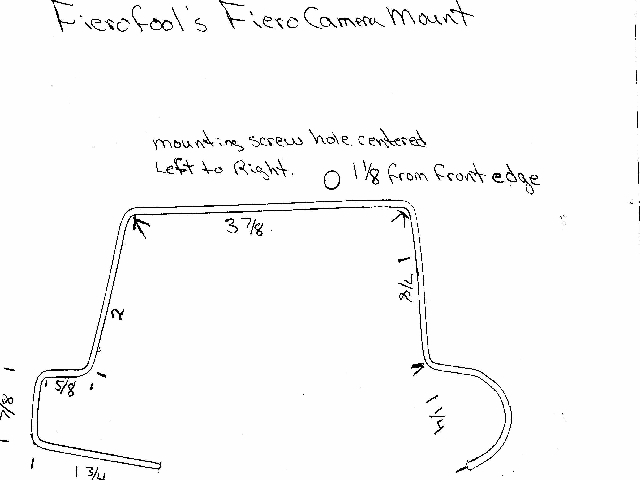 Fierofool's Fiero Camera Mount
mounting screw hole centered
Left to Right. O 1 1/8 from front edge
3 7/8
1 7/8
2
5/8
7/8
1 3/4